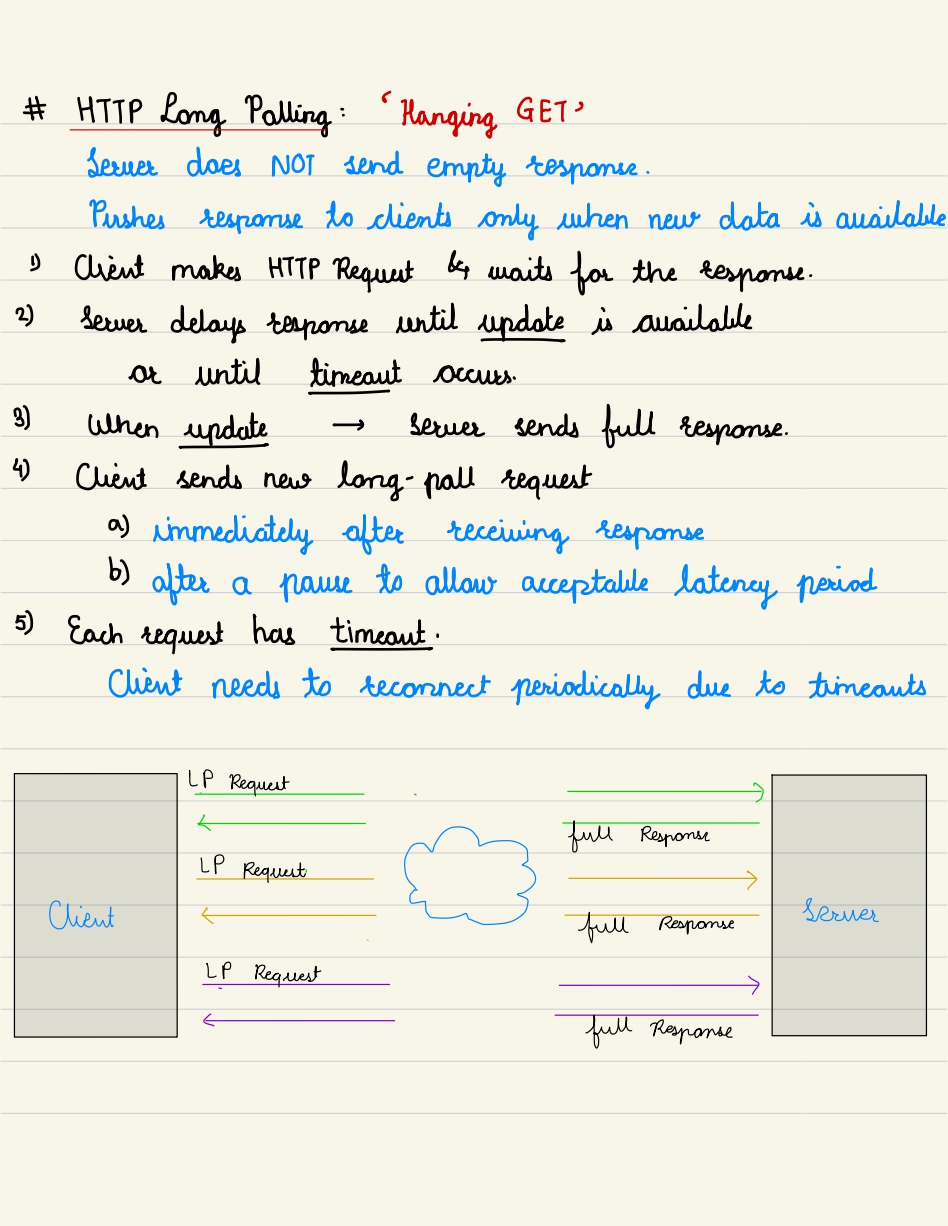 # HTTP Long Polling: 'Hanging GET'
Server does NOT send empty response.
Pushes response to clients only when new data is available
1) Client makes HTTP Request & waits for the response.
2) Server delays response until update is available
or until timeout occurs.
3) When update → server sends full response.
4) Client sends new long-poll request
a) immediately after receiving response
b) after a pause to allow acceptable latency period
5) Each request has timeout.
Client needs to reconnect periodically due to timeouts
LP Request
full Response
LP Request
Client
Server
full Response
LP Request
full Response